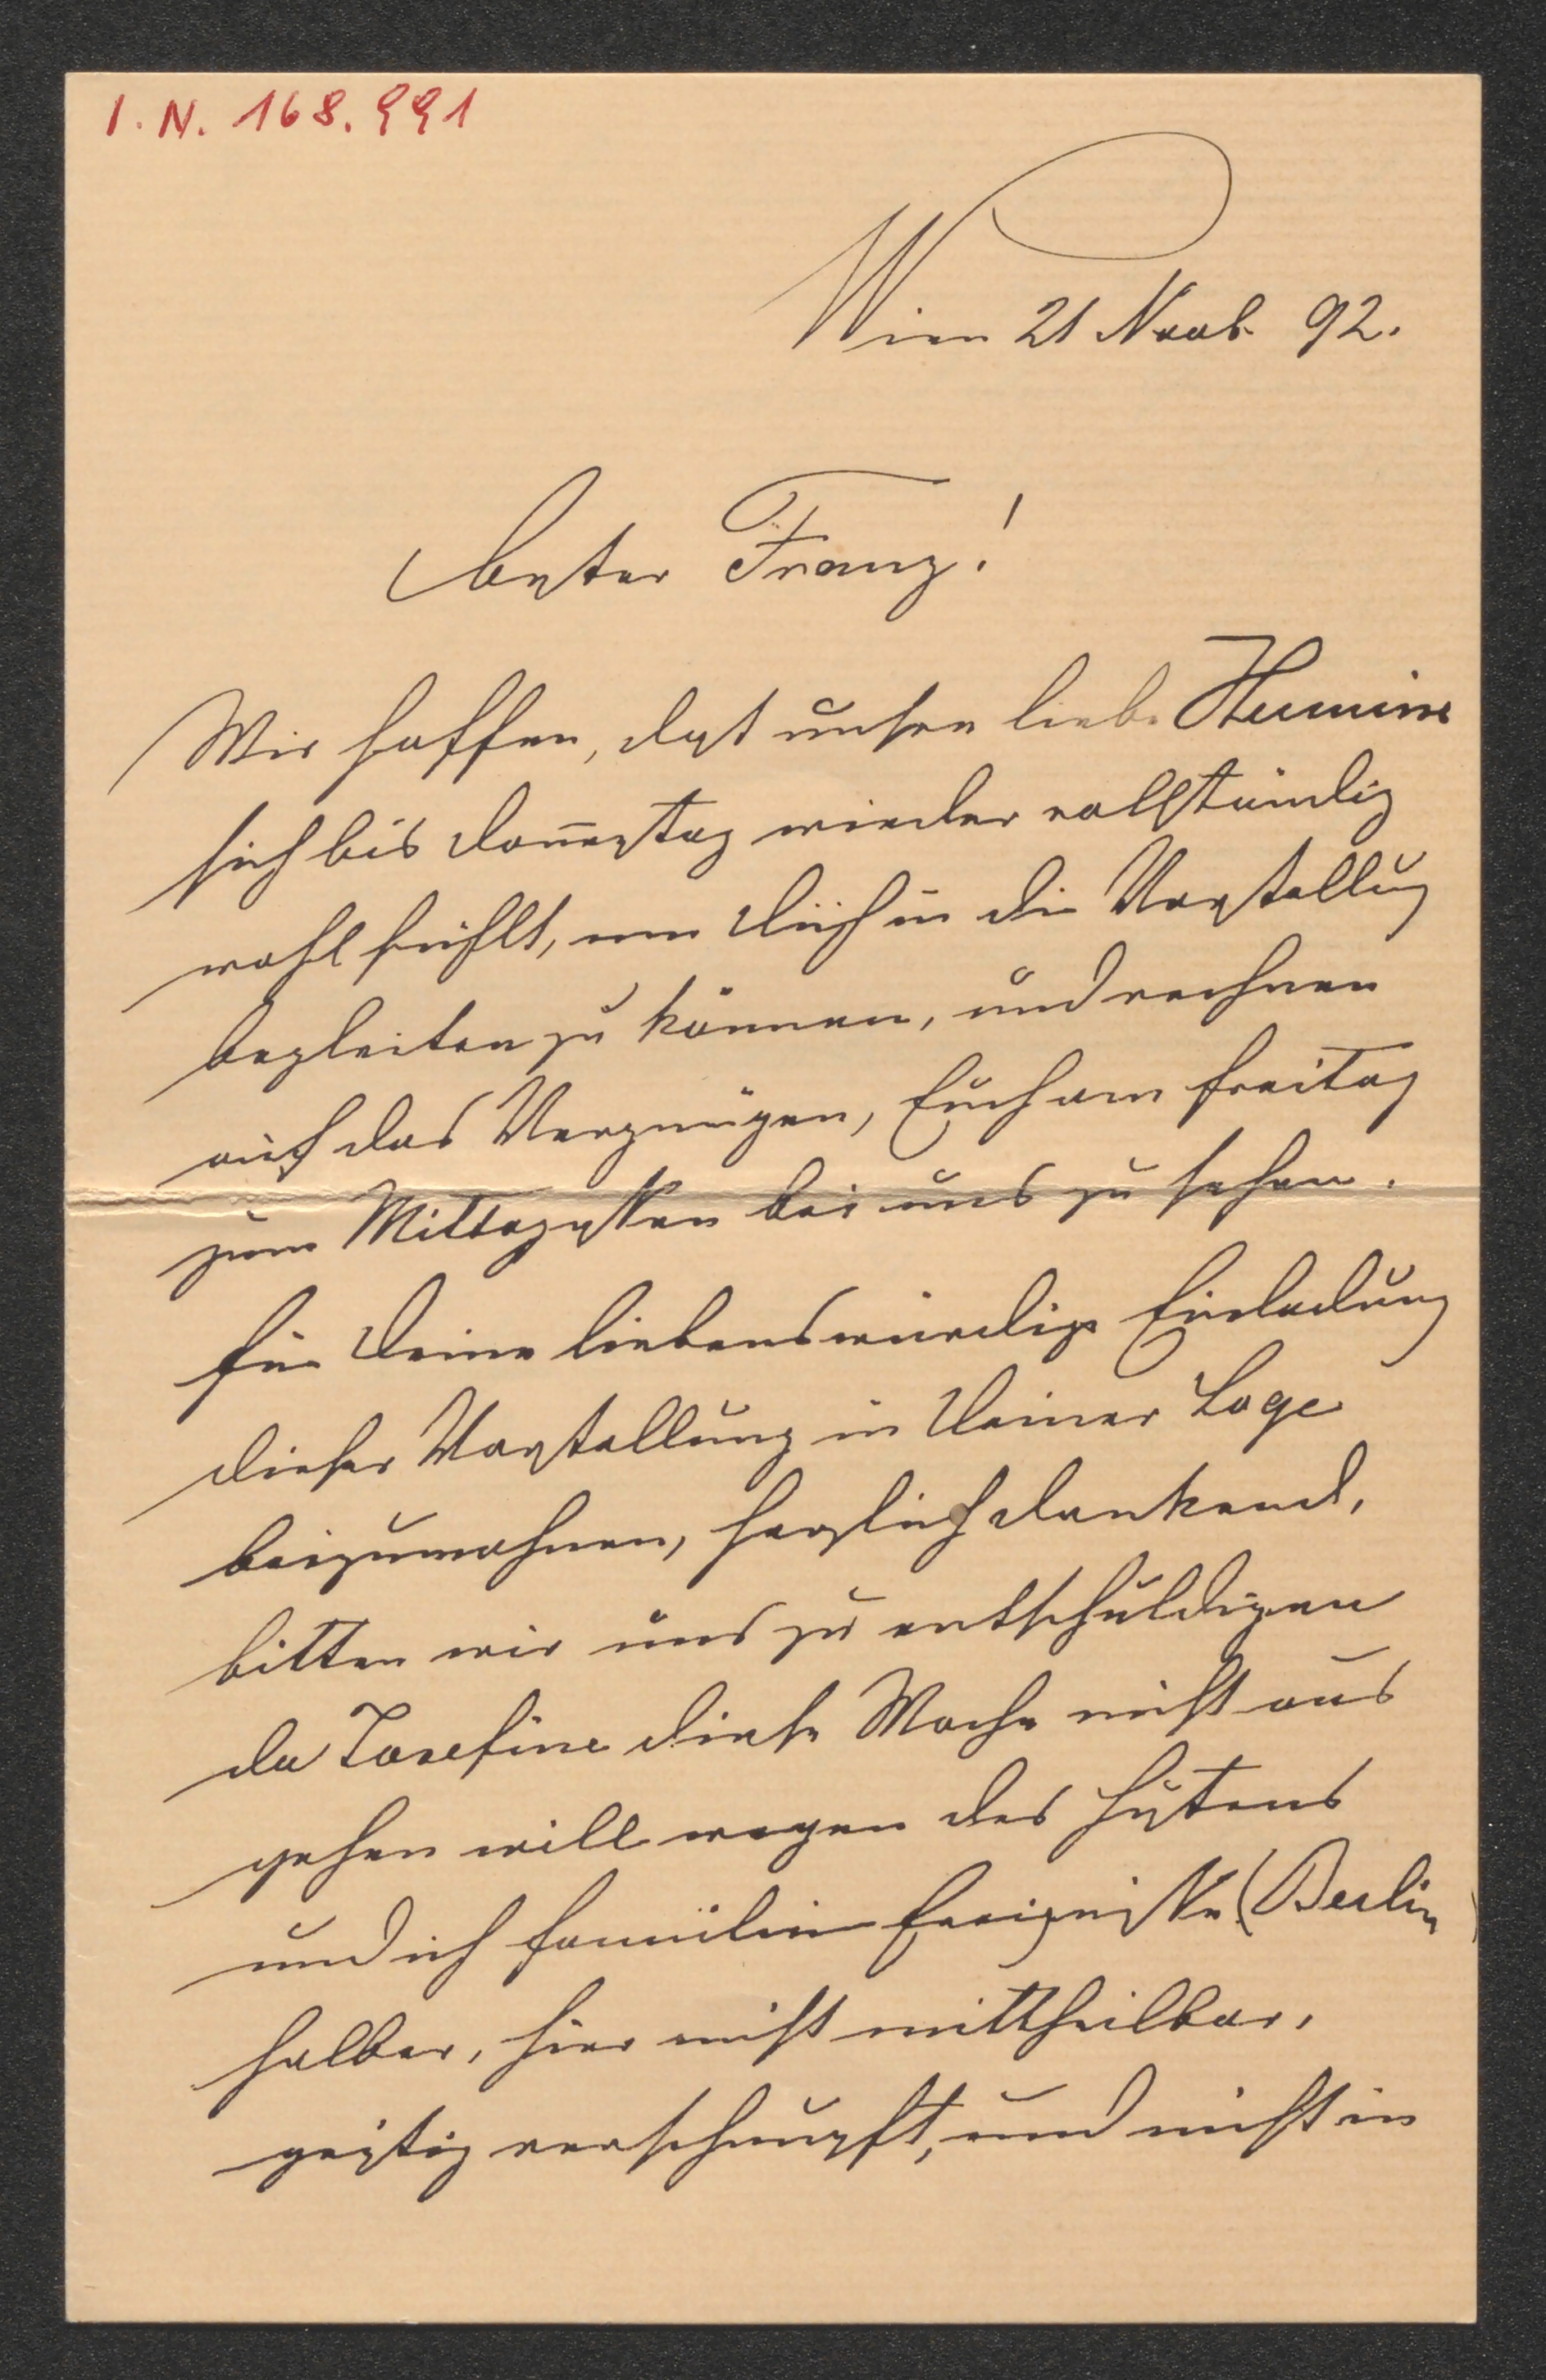 I. N. 168.991
Wien 21 Novb. 92.
Bester Franz!
Wir hoffen, daß unsere liebe Hermine
sich bis Donnerstag wieder vollständig
wohl fühlt, um Dich in die Vorstellung
begleiten zu können, und rechnen
auf das Vergnügen, Euch am Freitag
zum Mittagessen bei uns zu sehen.
Für Deine liebenswürdige Einladung
dieser Vorstellung in Deiner Loge
beizuwohnen, herzlich dankend,
bitten wir uns zu entschuldigen
da Josefine diese Woche nicht aus
gehen will wegen des Hustens
und ich familien Ereignisse (Berlin)
halber, hier nicht mittheilbar,
geistig verschnupft, und nicht in